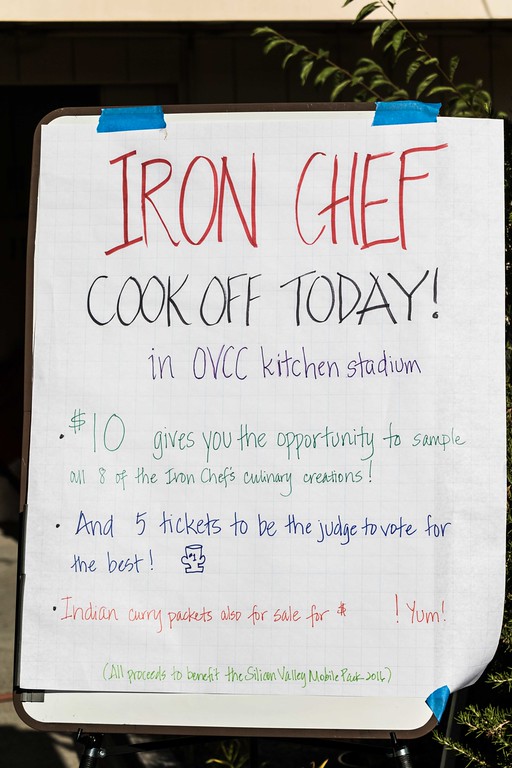 IRON CHEF
COOK OFF TODAY!
in OVCC kitchen stadium
• $10 gives you the opportunity to sample
all 8 of the Iron Chef's culinary creations!
• And 5 tickets to be the judge to vote for
the best! #1
• Indian curry packets also for sale for $ ! Yum!
(All proceeds to benefit the Silicon Valley Mobile Pack 2016)